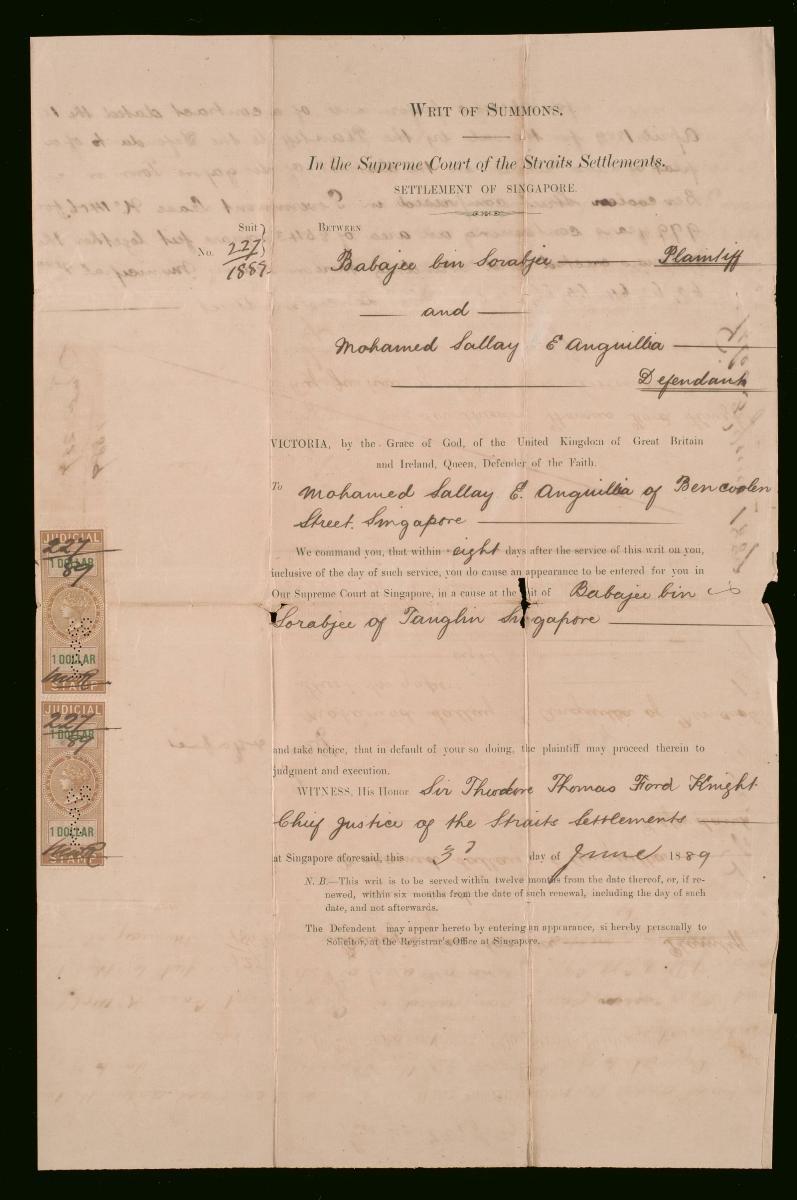 WRIT OF SUMMONS.
In the Supreme Court of the Straits Settlements.
SETTLEMENT OF SINGAPORE.
Suit
No. 227
1889.
BETWEEN
Babajee bin Sorabjee Plaintiff
and
Mohamed Sallay E Anguillia
Defendant
VICTORIA, by the Grace of God, of the United Kingdom of Great Britain
and Ireland, Queen, Defender of the Faith.
To Mohamed Sallay E. Anguillia of Bencoolen
Street. Singapore
We command you, that within eight days after the service of this writ on you,
inclusive of the day of such service, you do cause an appearance to be entered for you in
Our Supreme Court at Singapore, in a cause at the it of Babajee bin
Sorabjee of Tanglin Singapore
and take notice, that in default of your so doing, the plaintiff may proceed therein to
judgment and execution.
WITNESS, His Honor Sir Theodore Thomas Ford Knight
Chief Justice of the Straits Settlements
at Singapore aforesaid, this 3d day of June 1889
N. B.—This writ is to be served within twelve months from the date thereof, or, if re-
newed, within six months from the date of such renewal, including the day of such
date, and not afterwards.
The Defendent may appear hereto by entering an appearance, si hereby personally to
Solicitor, at the Registrar's Office at Singapore.
JUDICIAL
227
1 DOLLAR
89
1 DOLLAR
STAMP
JUDICIAL
227
1 DOLLAR
89
1 DOLLAR
STAMP